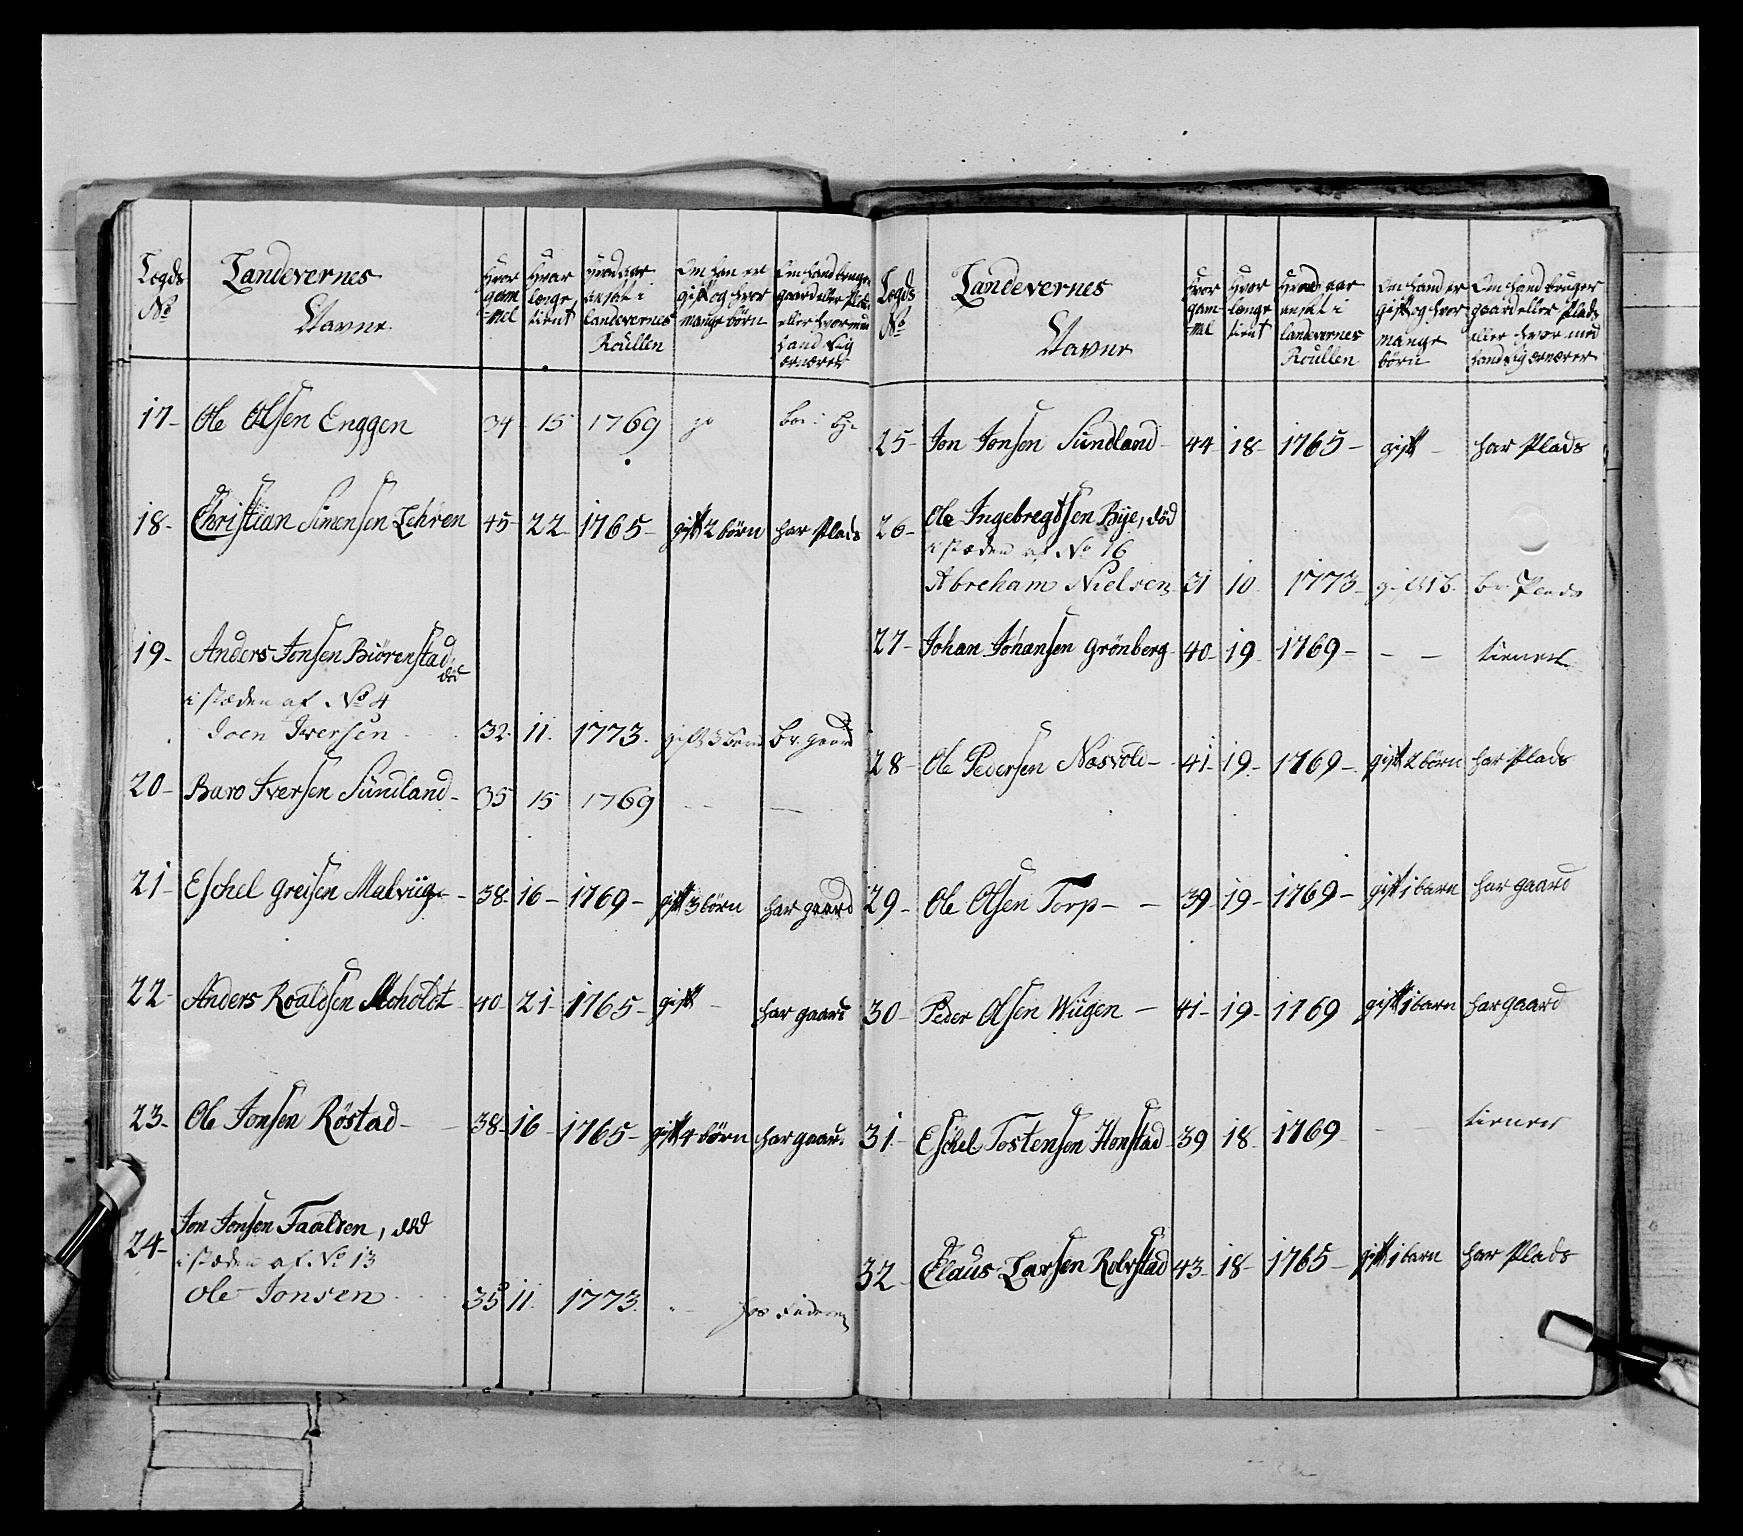 Legds No
Landevernes Navne
Hvor gammel
Hvor længe tient
Hvad aar ansat i Landevernes Roullen
Om han er gift og hvor mange börn
Om hand bruger gaard eller Plads eller hvor med hand sig ernærer
17- Ole Olsen Enggen 34 15 1769
18- Christian Simensen Lehren 45- 22- 1765- gift 2 börn har Plads
19- Anders Jonsen Biörenstad, död
i stæden af No 4
Joen Iversen 32. 11. 1773. gift 3 börn br. gaard
20- Baro Iversen Sundland- 35 15 1769 - - —
21- Eschel Greisen Malviig- - 38- 16- 1769- gift 3 börn har gaard
22- Anders Roaldsen Moholdt 40- 21- 1765- gift - har gaard
23- Ole Jonsen Röstad- - 38- 16- 1765- gift 4 börn har gaard
24- Jon Jonsen Taalsen, död
i stæden af No 13
Ole Jonsen 35 11. 1773. - hos Faderen
Legds No
Landevernes Navne
Hvor gammel
Hvor længe tient
Hvad aar ansat i Landevernes Roullen
Om hand er gift og hvor mange börn
Om hand bruger gaard eller Plads eller hvor med hand sig ernærer
25- Jon Jonsen Sundland- 44- 18- 1765- gift - har Plads
26- Ole Ingebregtsen Bye, död
i stæden af No 16
Abreham Nielsen 31 10 1773- gift 1 b. br. Plads
27- Johan Johansen Grönberg- 40- 19 1769- - - tiener
28- Ole Pedersen Næsvold- 41- 19- 1769- gift 2 börn har Plads
29- Ole Olsen Torp- - 39- 19- 1769- gift 1 barn har gaard
30- Peder Olsen Wiigen - 41- 19- 1769 gift 1 barn har gaard
31- Eschel Tostensen Honstad 39 18- 1769 - tiener
32- Claus Larsen Rolvstad 43- 18- 1765- gift 1 barn har Plads